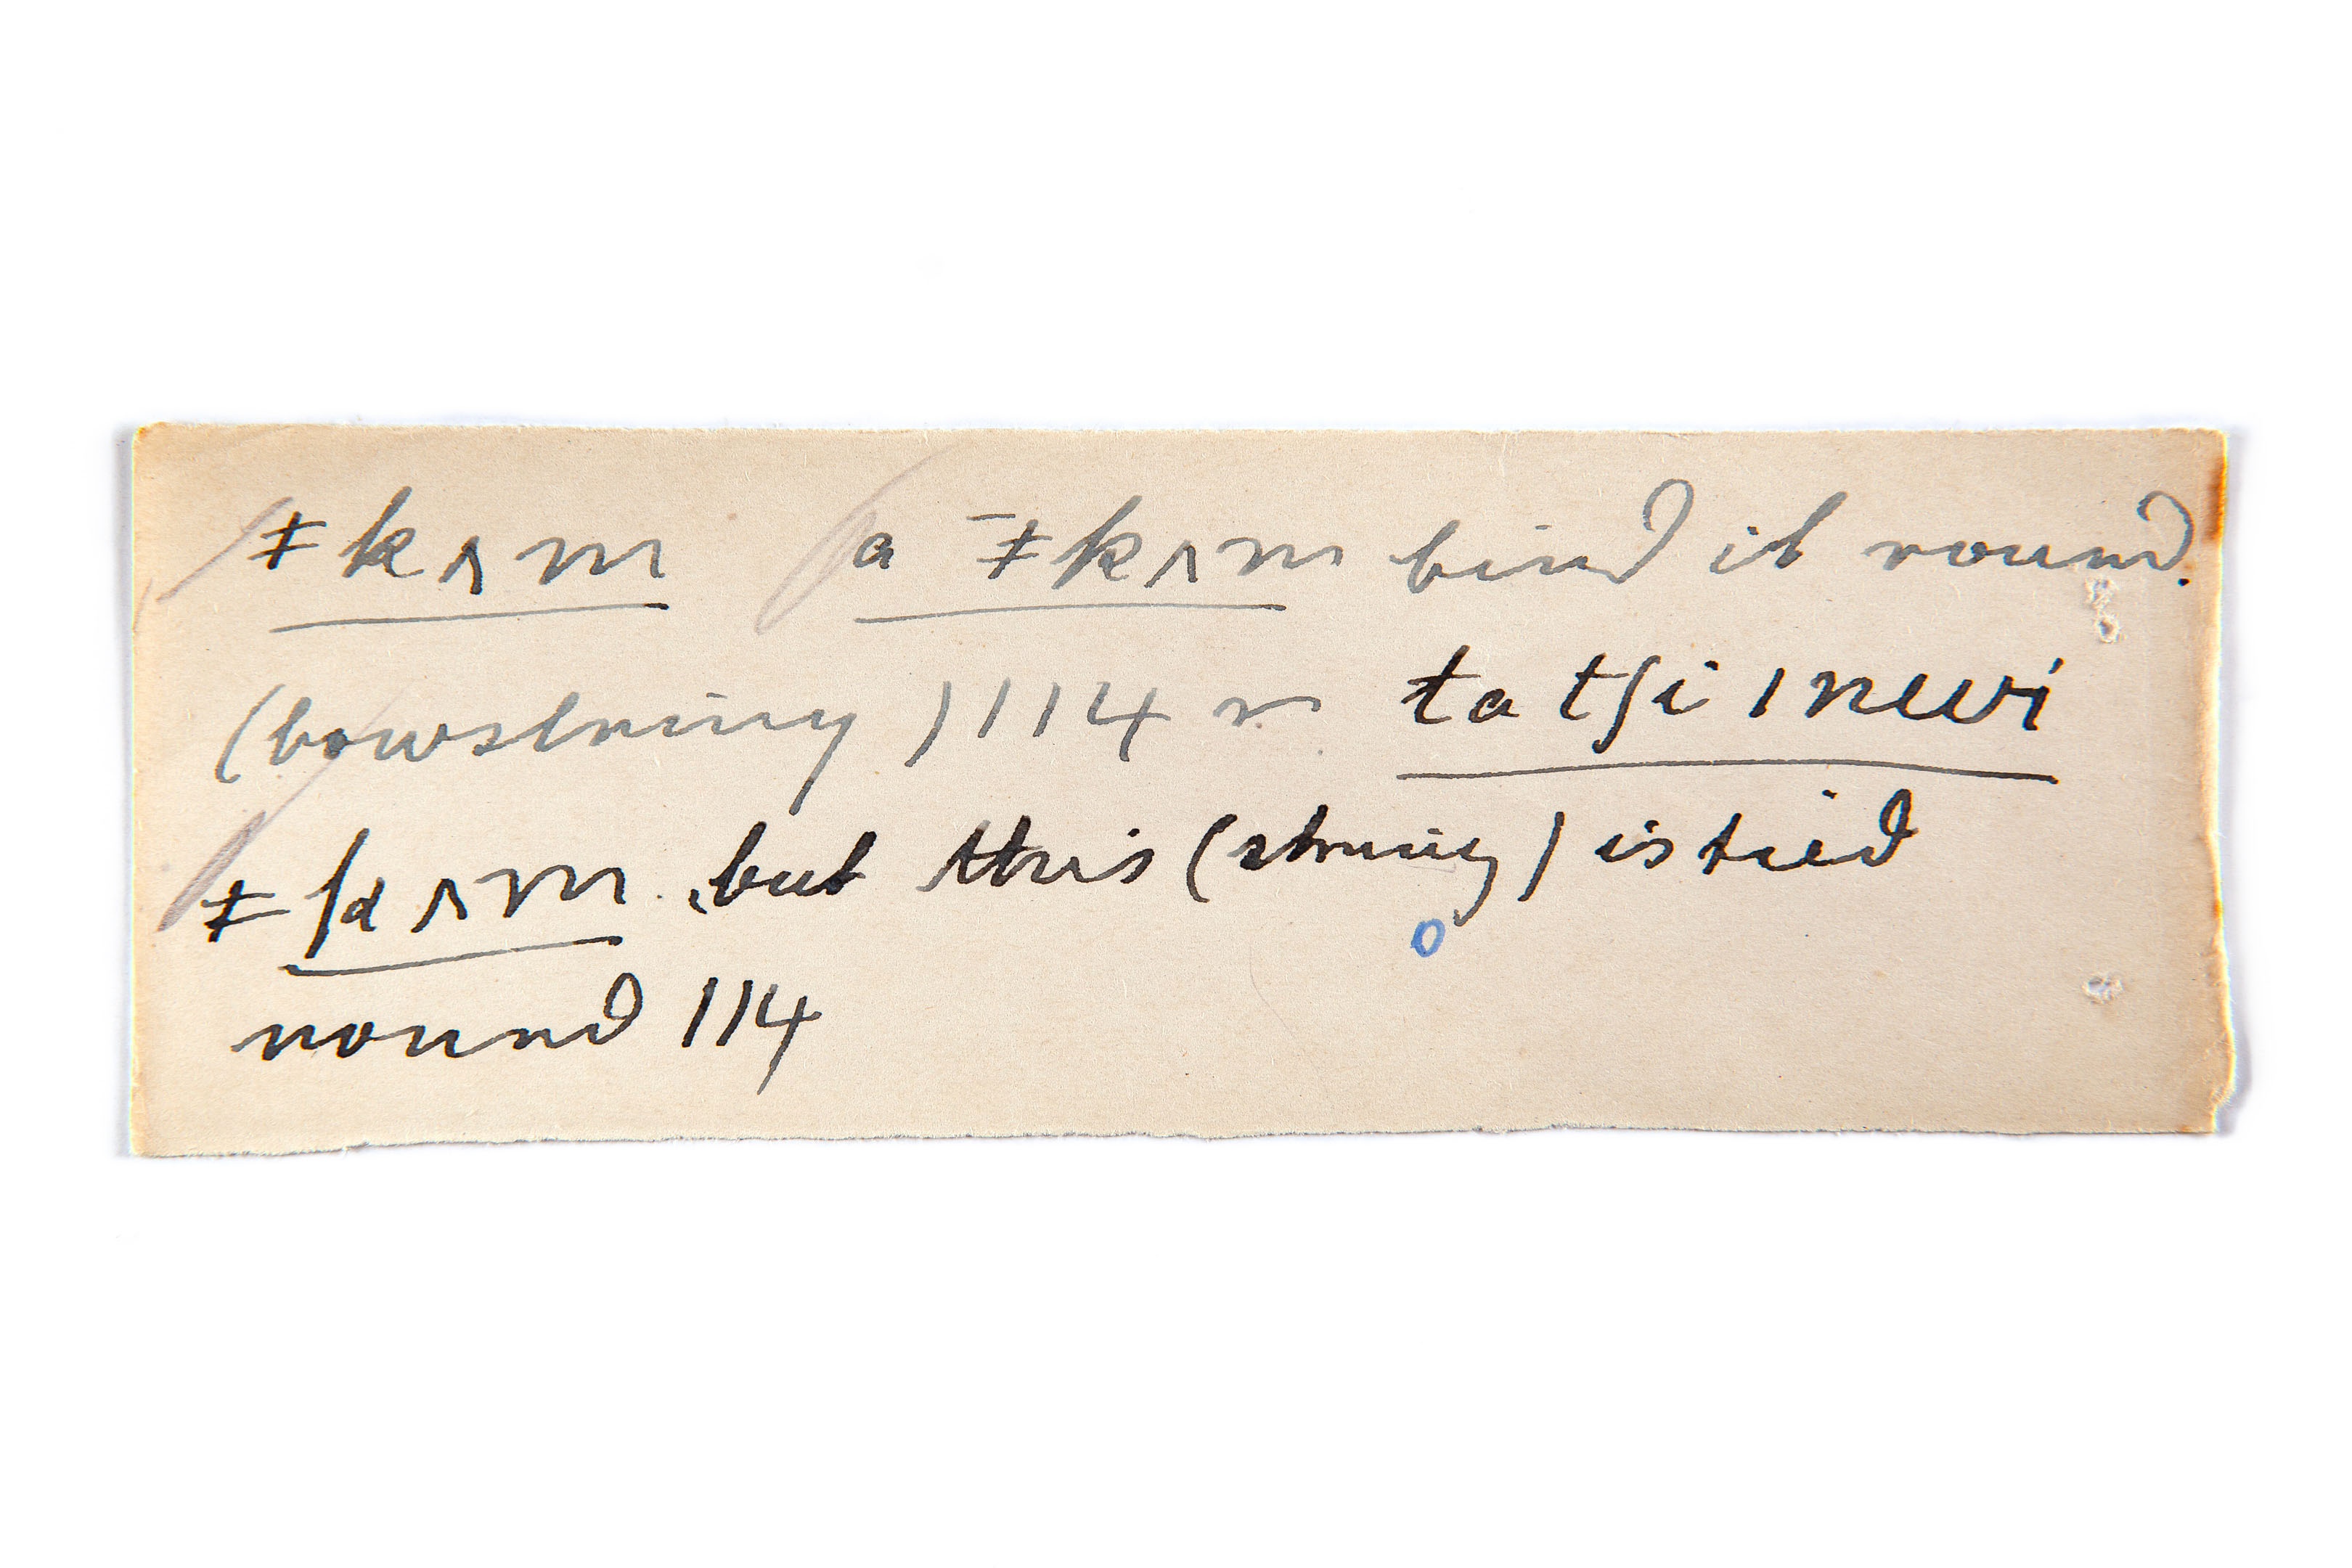 ǂkʌm a ǂkʌm bind it round.
(bowstring) 114 r. ta tʃi ı newi
ǂkʌm. but this (string) is tied
round 114